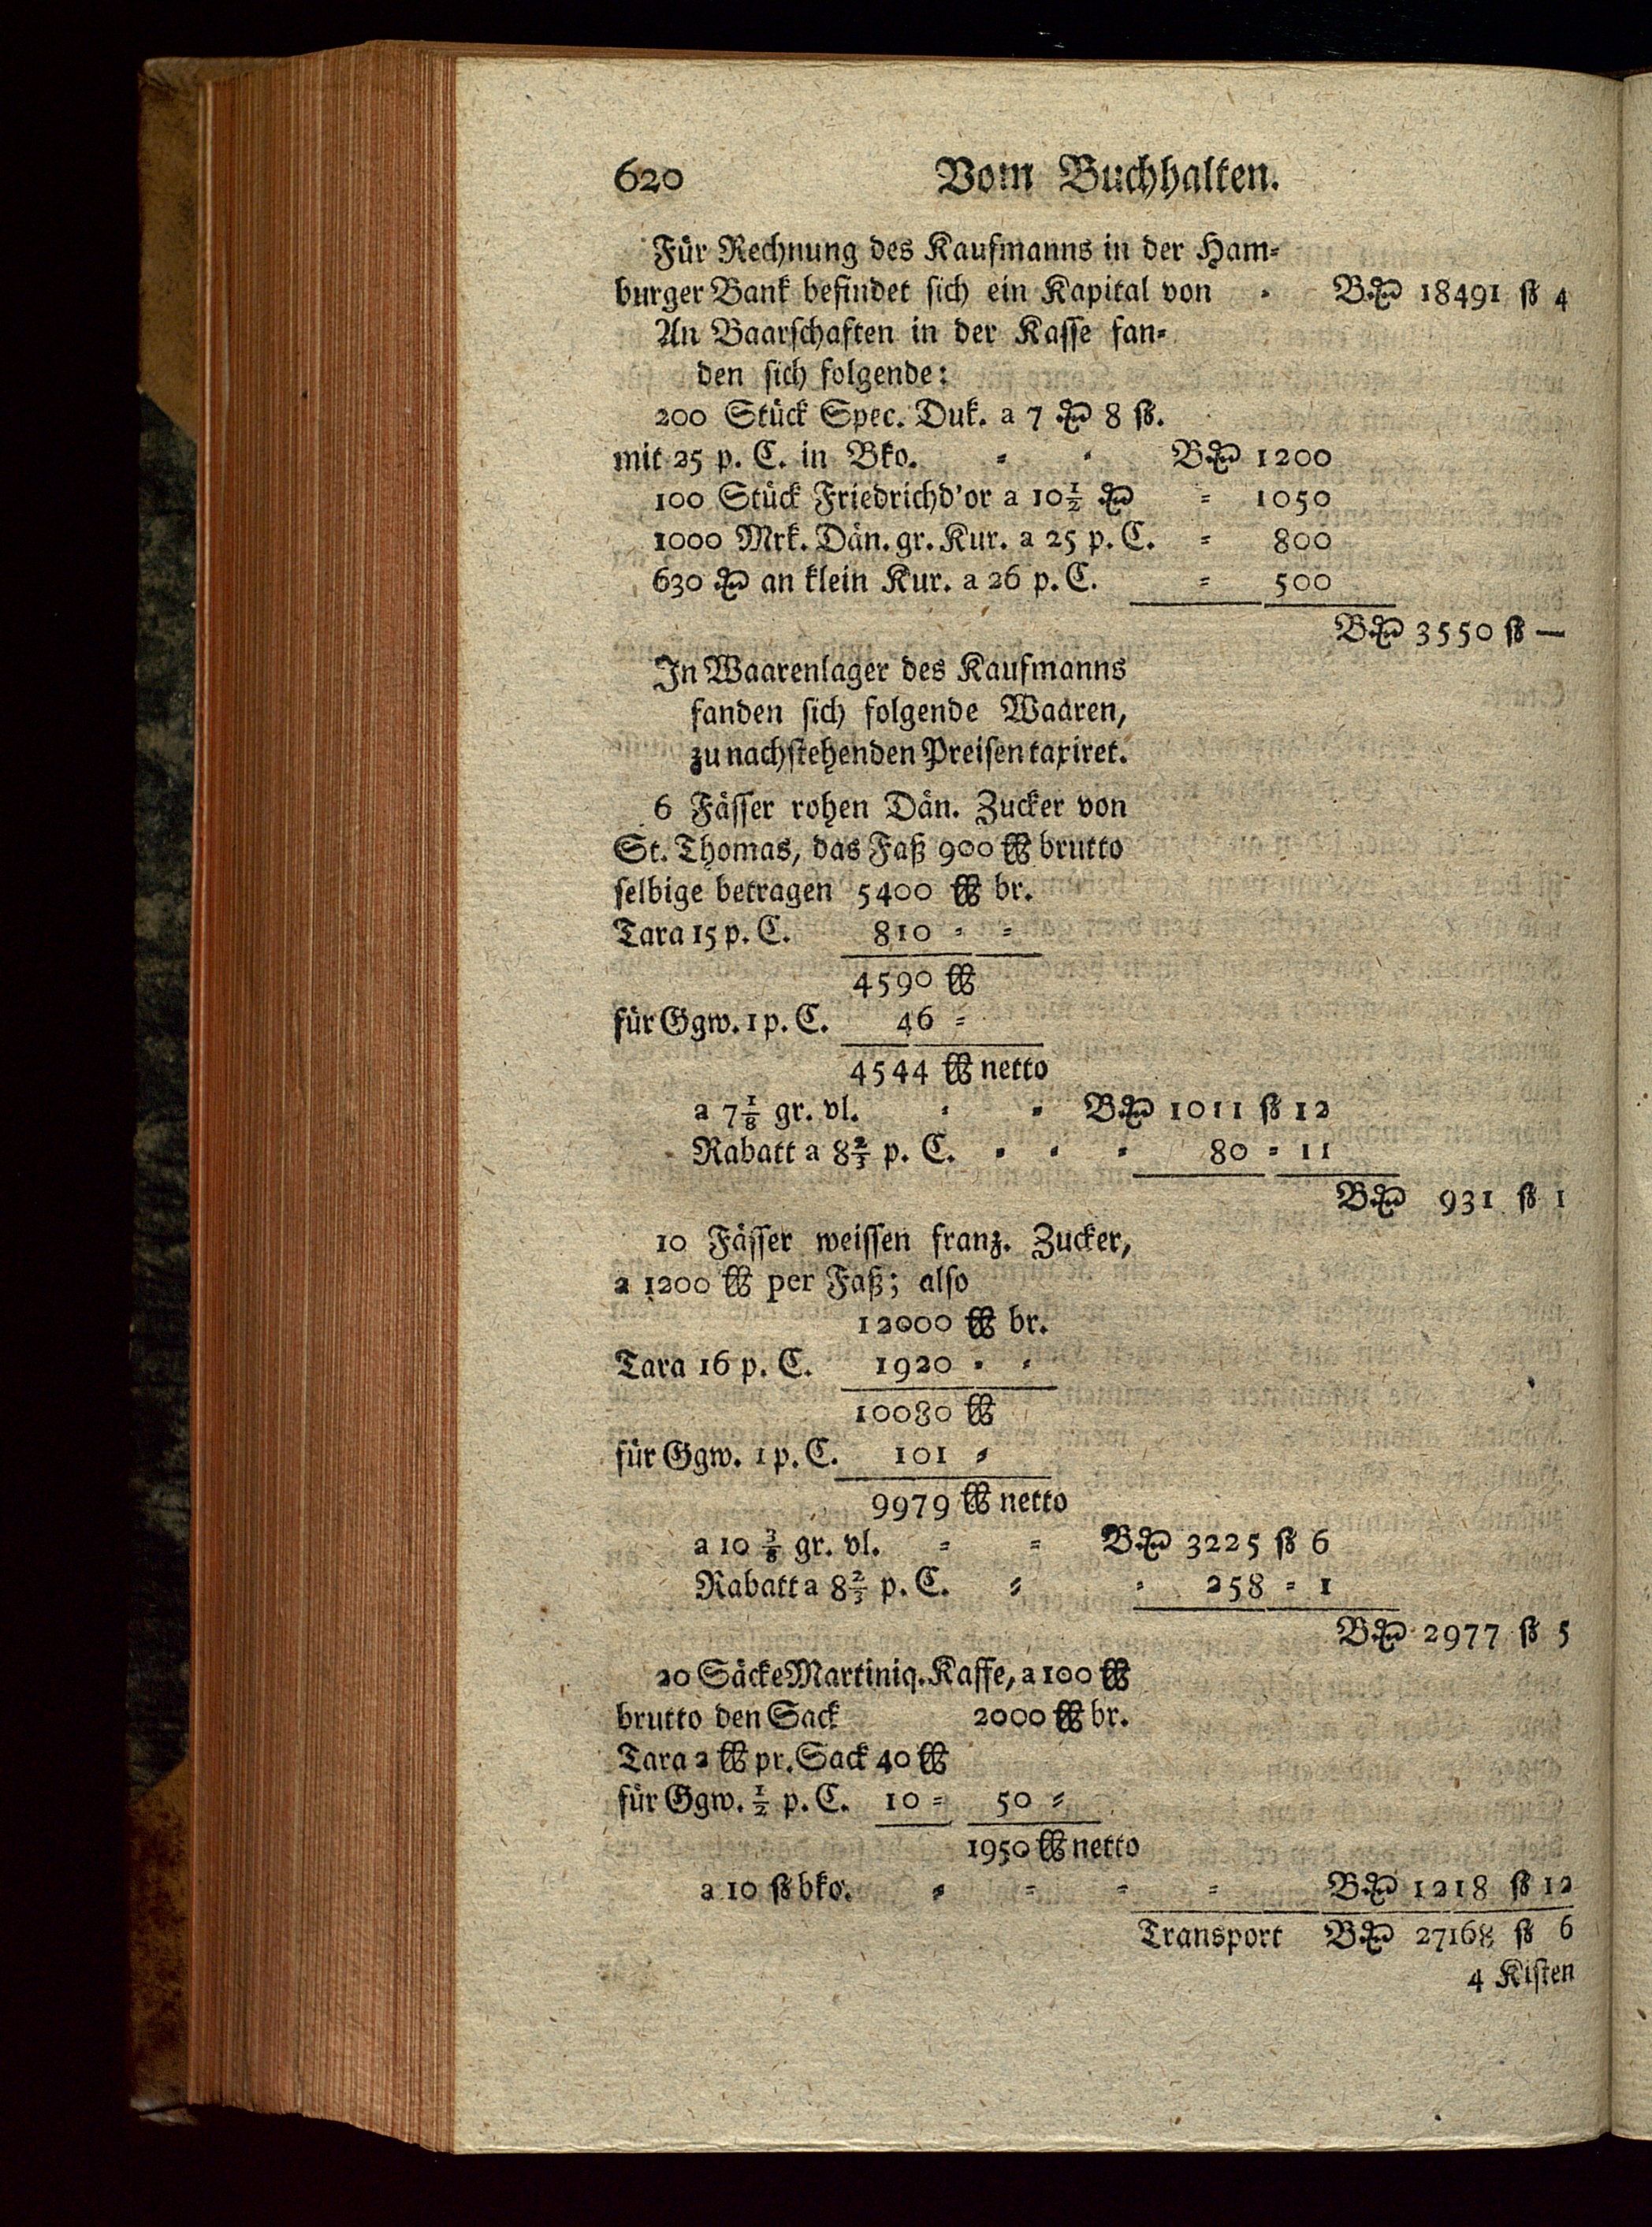 620 Vom Buchhalten.
Für Rechnung des Kaufmanns in der Ham⸗
burger Bank befindet sich ein Kapital von ⸗ B.ℳ 18491 ß 4
An Baarschaften in der Kasse fan⸗
den sich folgende:
200 Stück Spec. Duk. a 7 ℳ 8 ß.
mit 25 p. C. in Bko. ⸗ ⸗ Bℳ 1200
100 Stück Friedrichd'or a 10½ ℳ ⸗ 1050
1000 Mrk. Dän. gr. Kur. a 25 p. C. ⸗ 800
630 ℳ an klein Kur. a 26 p. C. ⸗ 500
Bℳ 3550 ß —
In Waarenlager des Kaufmanns
fanden sich folgende Waaren,
zu nachstehenden Preisen taxiret.
6 Fässer rohen Dän. Zucker von
St. Thomas, das Faß 900 ℔ brutto
selbige betragen 5400 ℔ br.
Tara 15 p. C. 810 ⸗ ⸗
4590 ℔
für Ggw. 1 p. C. 46 ⸗
4544 ℔ netto
a 7⅛ gr. vl. ⸗ ⸗ Bℳ 1011 ß 12
Rabatt a 8⅔ p. C. ⸗ ⸗ ⸗ 80 ⸗ 11
Bℳ 931 ß 1
10 Fässer weissen franz. Zucker,
a 1200 ℔ per Faß; also
12000 ℔ br.
Tara 16 p. C. 1920 ⸗ ⸗
10080 ℔
für Ggw. 1 p. C. 101 ⸗
9979 ℔ netto
a 10 ⅜ gr. vl. ⸗ ⸗ Bℳ 3225 ß 6
Rabatt a 8⅔ p. C. ⸗ ⸗ 258 ⸗ 1
Bℳ 2977 ß 5
20 Säcke Martiniq. Kaffe, a 100 ℔
brutto den Sack 2000 ℔ br.
Tara 2 ℔ pr. Sack 40 ℔
für Ggw. ½ p. C. 10 ⸗ 50 ⸗
1950 ℔ netto
a 10 ß bko. ⸗ ⸗ ⸗ ⸗ Bℳ 1218 ß 12
Transport Bℳ 27168 ß 6
4 Kisten